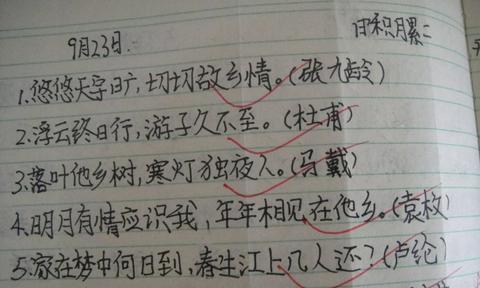 9月23日.
日积月累二
1.悠悠天宇旷,切切故乡情。(张九龄)
2.浮云终日行,游子久不至。(杜甫)
3.落叶他乡树,寒灯独夜人。(马戴)
4.明月有情应识我,年年相见在他乡。(袁枚)
5.家在梦中何日到,春生江上几人还?(卢纶)